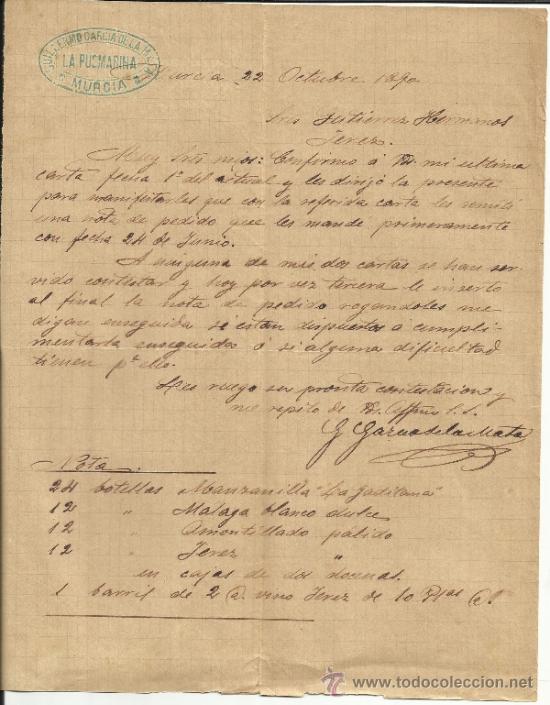 GUILLERMO GARCIA DE LA MATA
LA PUSMARINA
MURCIA
Murcia 22 Octubre 1890
Sres Gutierrez Hermanos
Jerez.
Muy Sres mios: Confirmo á Vds mi ultima
carta fecha 1º del actual y les dirijo la presente
para manifestarles que con la referida carta les remiti
una nota de pedido que les mandé primeramente
con fecha 24 de Junio.
A ninguna de mis dos cartas se han ser-
vido contestar y hoy por vez tercera le inserto
al final la nota de pedido rogandoles me
digan enseguida si estan dispuestos a cumpli-
mentarla enseguida ó si alguna dificultad
tienen pª ello.
Les ruego su pronta contestacion y
me repito de Vds. Affmo S.S.
G Garcia de la Mata
Nota.
24 botellas Manzanilla "La Gaditana"
12 " Malaga blanco dulce
12 " Amontillado pálido
12 " Jerez "
en cajas de dos docenas.
1 barril de 2 @ vino Jerez de 10 Ptas @.
todocoleccion
www.todocoleccion.net